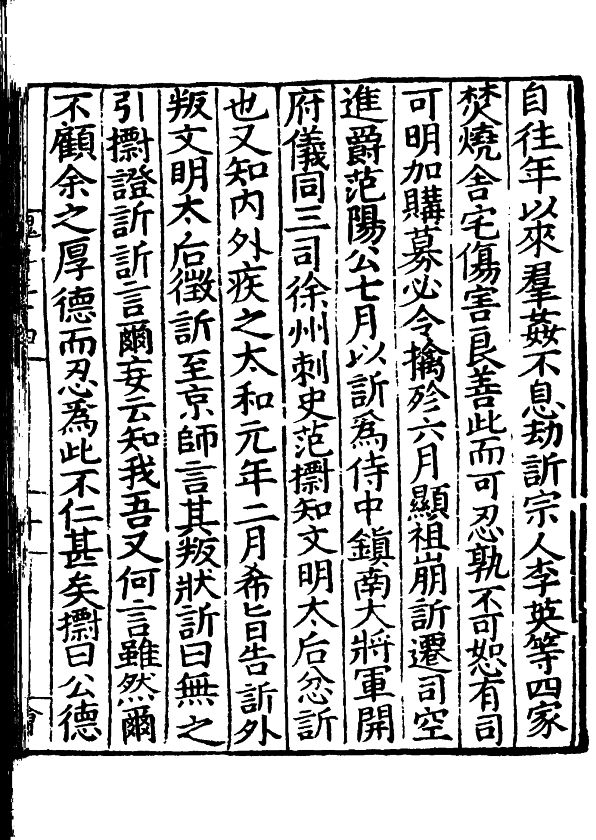 自往年以來羣姦不息劫訢宗人李英等四家
焚燒舍宅傷害良善此而可忍孰不可恕有司
可明加購募必令擒殄六月顯祖崩訢遷司空
進爵范陽公七月以訢爲侍中鎮南大將軍開
府儀同三司徐州刺史范㯹知文明太后忿訢
也又知內外疾之太和元年二月希旨告訢外
叛文明太后徵訢至京師言其叛狀訢曰無之
引㯹證訢訢言爾妄云知我吾又何言雖然爾
不顧余之厚德而忍為此不仁甚矣㯹曰公德